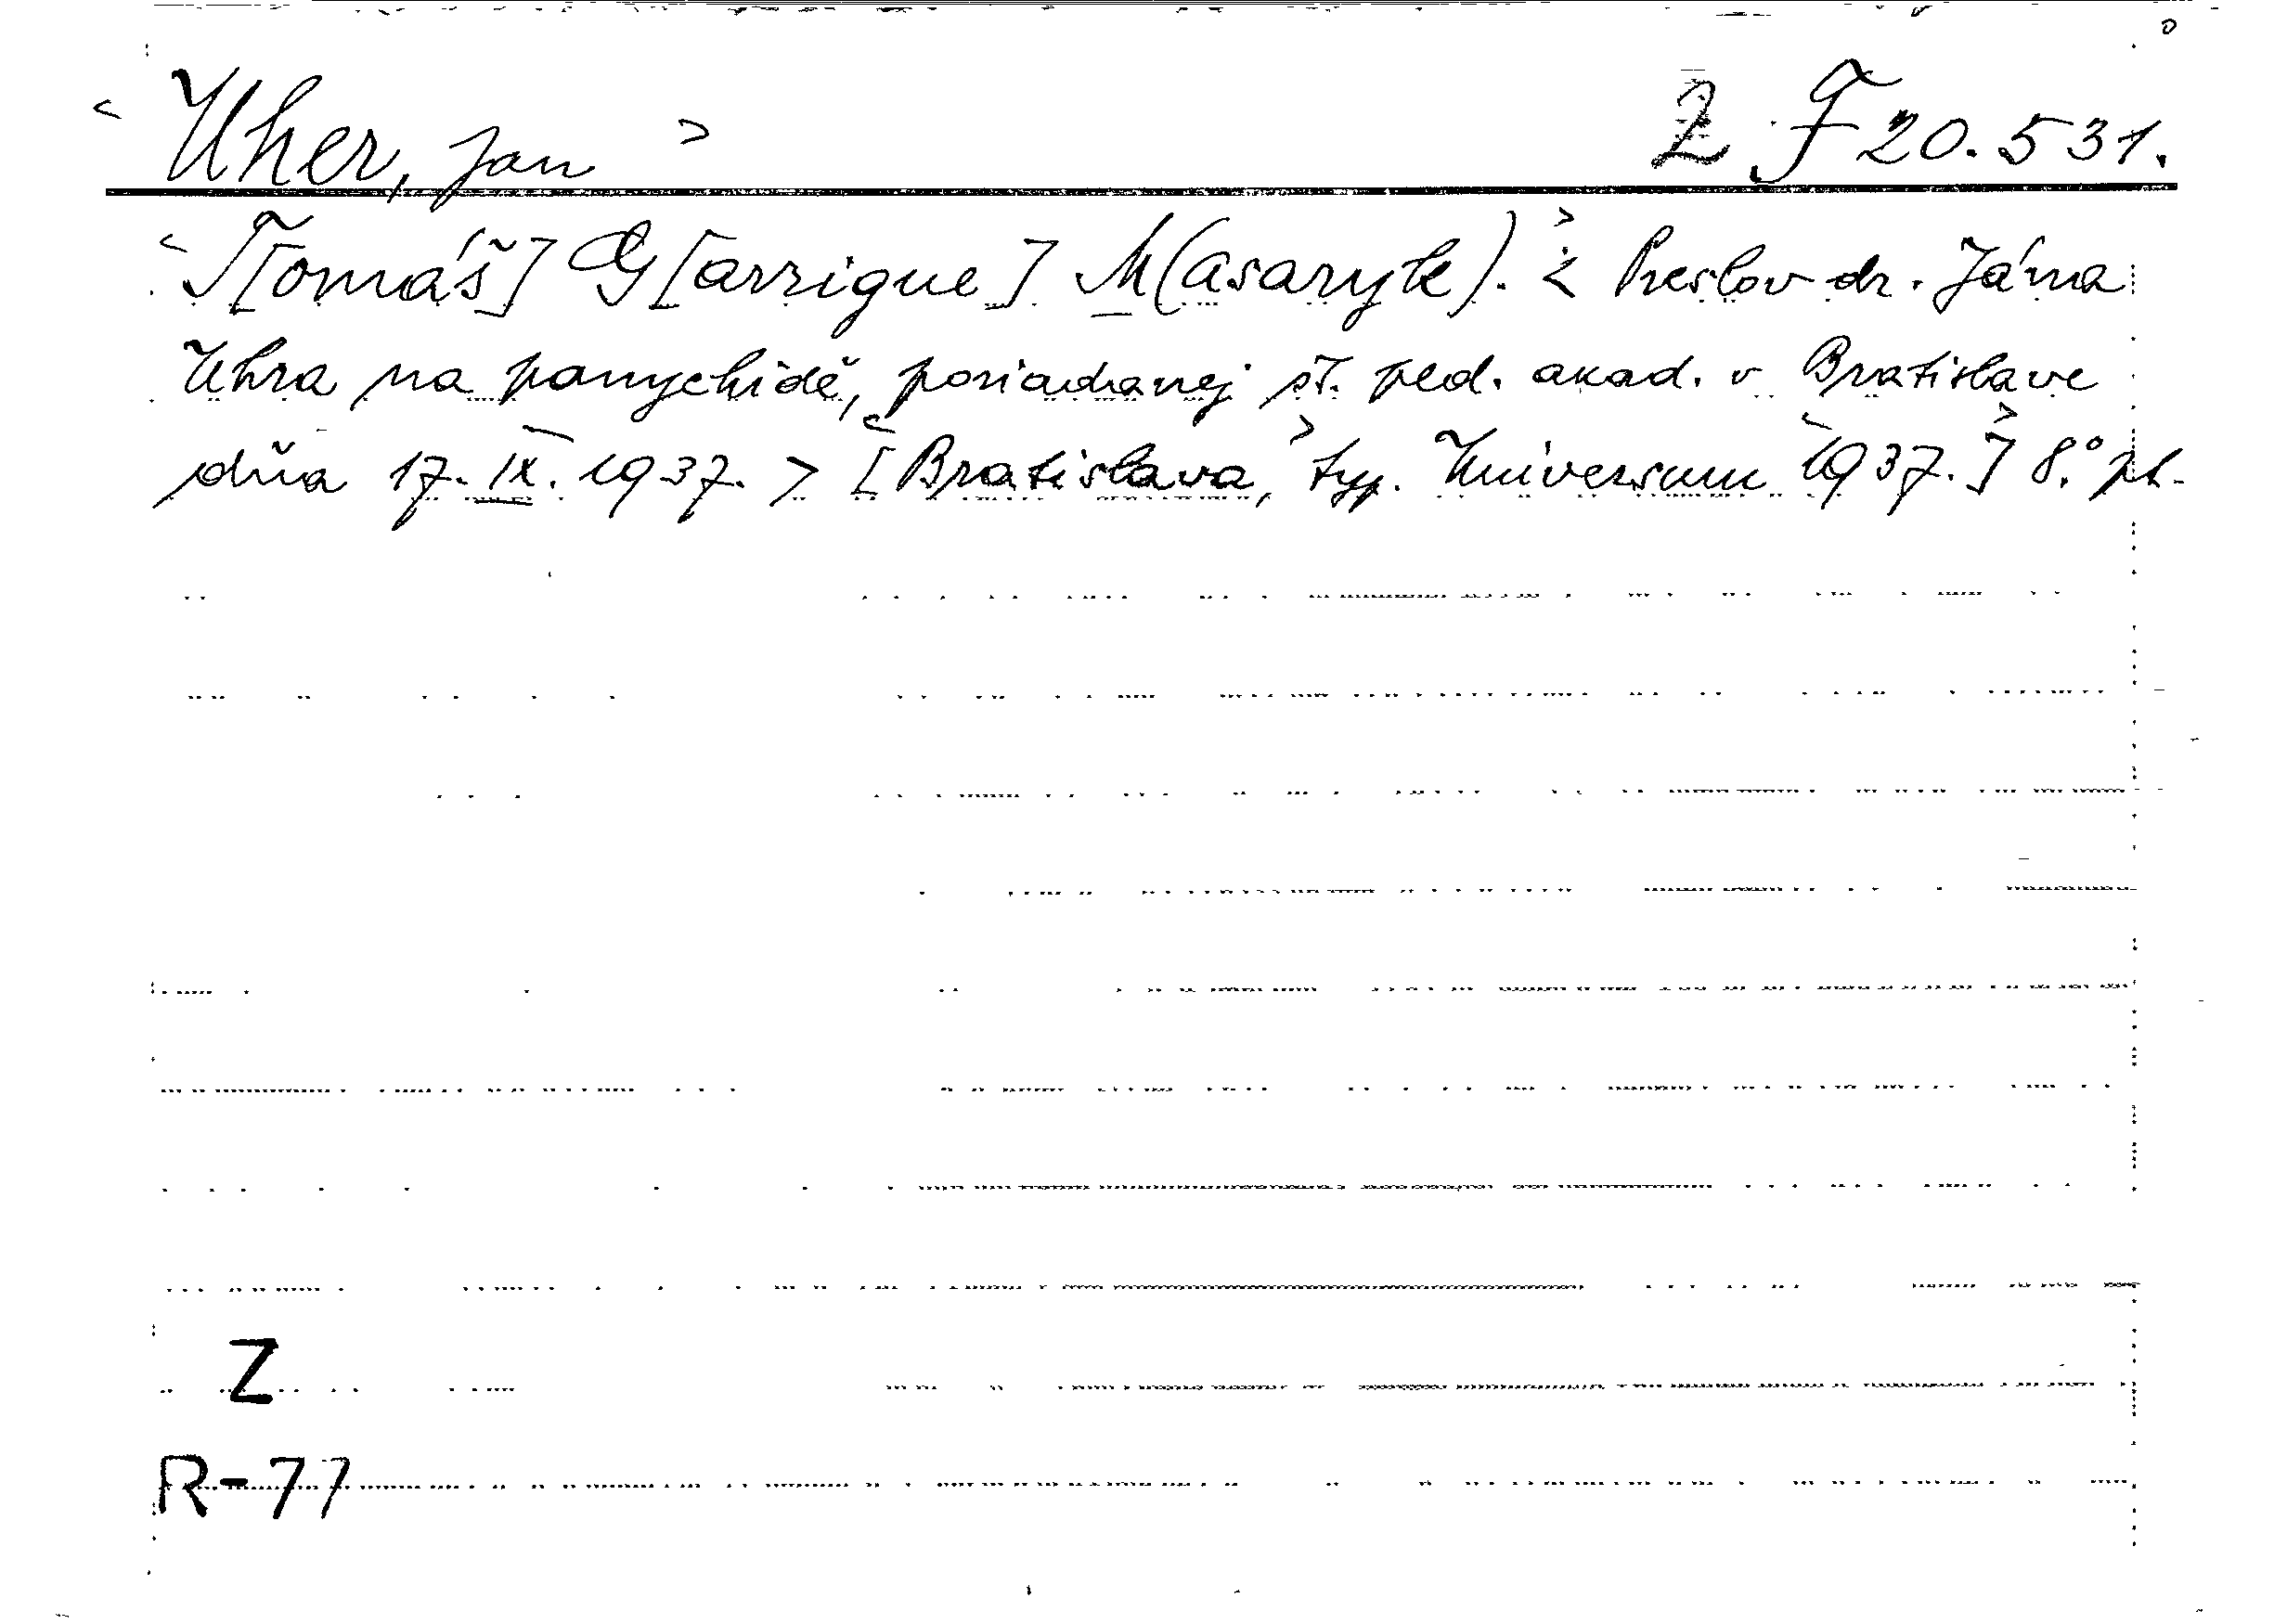 < Uher, Jan > Z F 20.531.
< T[omáš] G[arrigue] M(asaryk). > < Preslov dr. Jána
Uhra na panychidě, poriadanej št. ped. akad. v Bratislave
dňa 17. IX. 1937. > < [Bratislava, > typ. Universum < 1937.] > 8.° pl.
Z
R-77